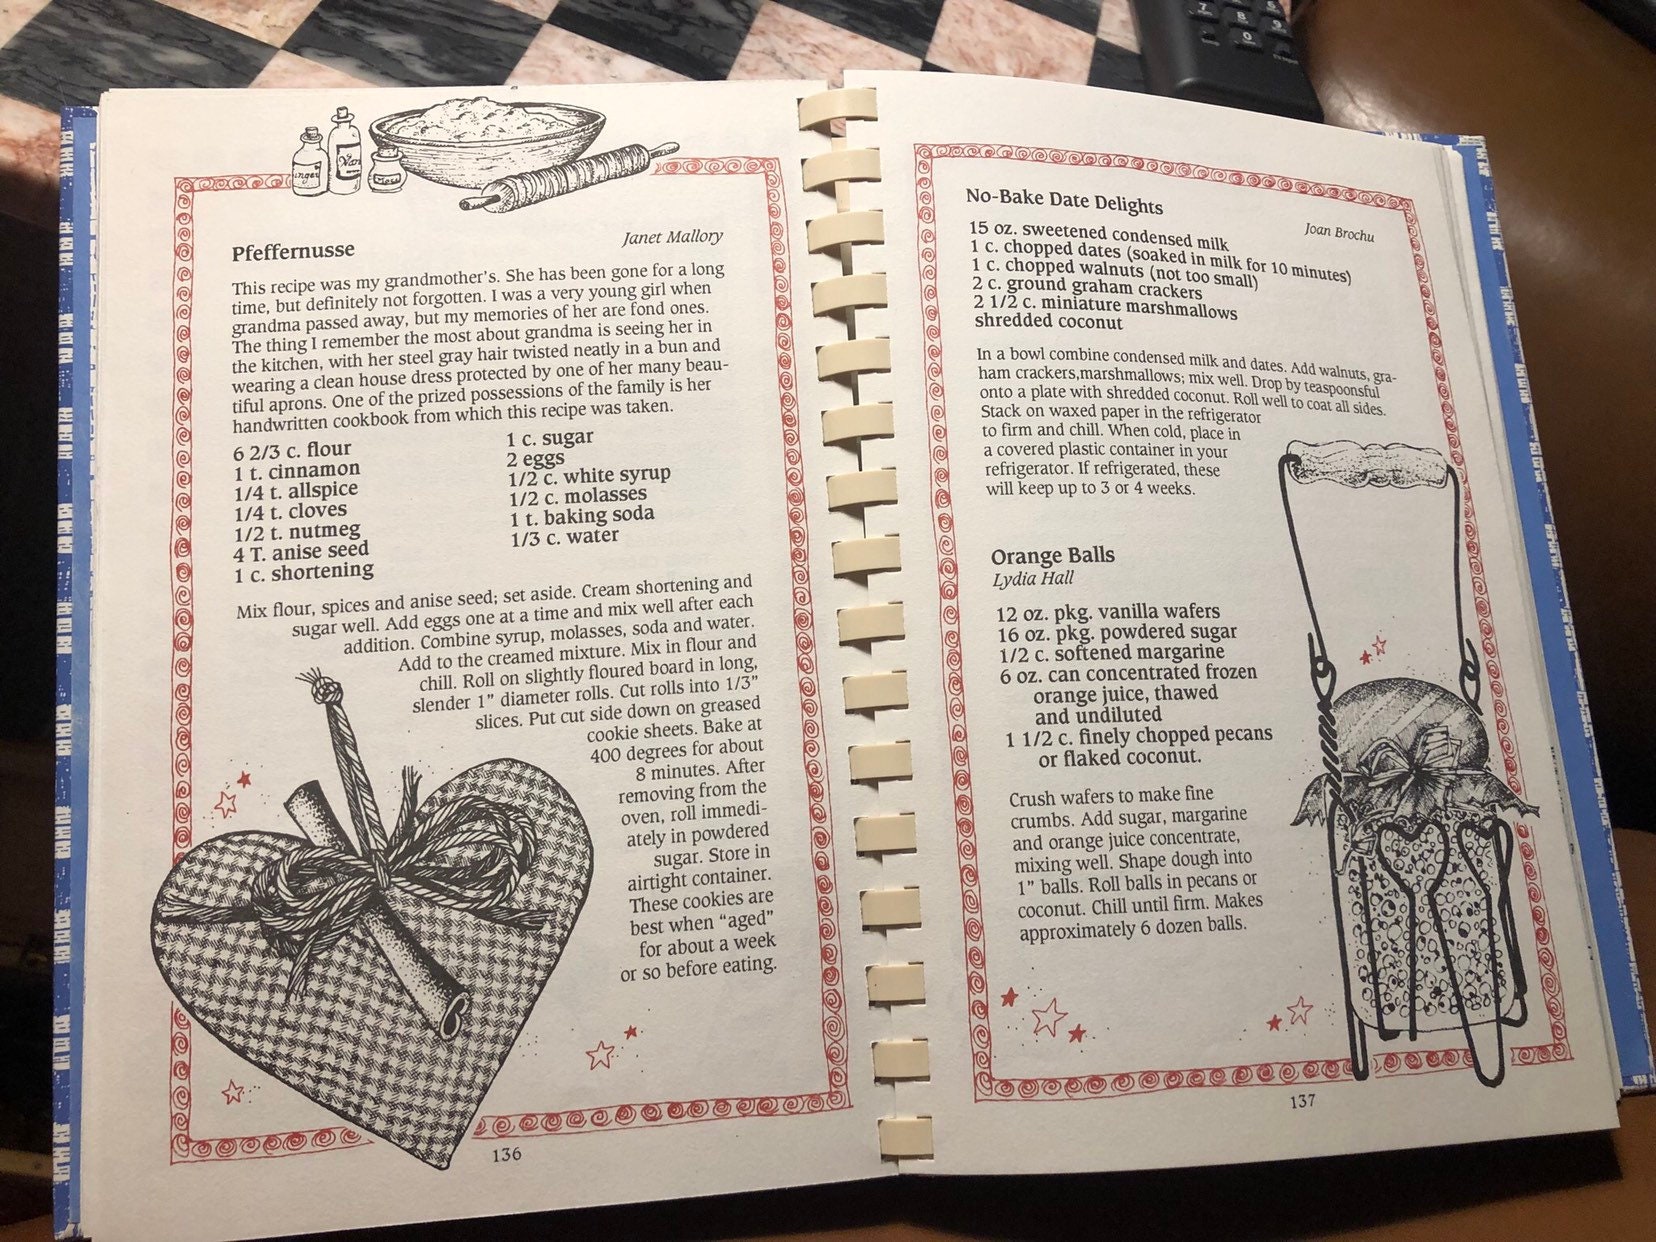 Pfeffernusse
Janet Mallory
This recipe was my grandmother's. She has been gone for a long
time, but definitely not forgotten. I was a very young girl when
grandma passed away, but my memories of her are fond ones.
The thing I remember the most about grandma is seeing her in
the kitchen, with her steel gray hair twisted neatly in a bun and
wearing a clean house dress protected by one of her many beau-
tiful aprons. One of the prized possessions of the family is her
handwritten cookbook from which this recipe was taken.
6 2/3 c. flour
1 t. cinnamon
1/4 t. allspice
1/4 t. cloves
1/2 t. nutmeg
4 T. anise seed
1 c. shortening
1 c. sugar
2 eggs
1/2 c. white syrup
1/2 c. molasses
1 t. baking soda
1/3 c. water
Mix flour, spices and anise seed; set aside. Cream shortening and
sugar well. Add eggs one at a time and mix well after each
addition. Combine syrup, molasses, soda and water.
Add to the creamed mixture. Mix in flour and
chill. Roll on slightly floured board in long,
slender 1" diameter rolls. Cut rolls into 1/3"
slices. Put cut side down on greased
cookie sheets. Bake at
400 degrees for about
8 minutes. After
removing from the
oven, roll immedi-
ately in powdered
sugar. Store in
airtight container.
These cookies are
best when "aged"
for about a week
or so before eating.
136
No-Bake Date Delights
Joan Brochu
15 oz. sweetened condensed milk
1 c. chopped dates (soaked in milk for 10 minutes)
1 c. chopped walnuts (not too small)
2 c. ground graham crackers
2 1/2 c. miniature marshmallows
shredded coconut
In a bowl combine condensed milk and dates. Add walnuts, gra-
ham crackers,marshmallows; mix well. Drop by teaspoonsful
onto a plate with shredded coconut. Roll well to coat all sides.
Stack on waxed paper in the refrigerator
to firm and chill. When cold, place in
a covered plastic container in your
refrigerator. If refrigerated, these
will keep up to 3 or 4 weeks.
Orange Balls
Lydia Hall
12 oz. pkg. vanilla wafers
16 oz. pkg. powdered sugar
1/2 c. softened margarine
6 oz. can concentrated frozen
orange juice, thawed
and undiluted
1 1/2 c. finely chopped pecans
or flaked coconut.
Crush wafers to make fine
crumbs. Add sugar, margarine
and orange juice concentrate,
mixing well. Shape dough into
1" balls. Roll balls in pecans or
coconut. Chill until firm. Makes
approximately 6 dozen balls.
137
7 8
0